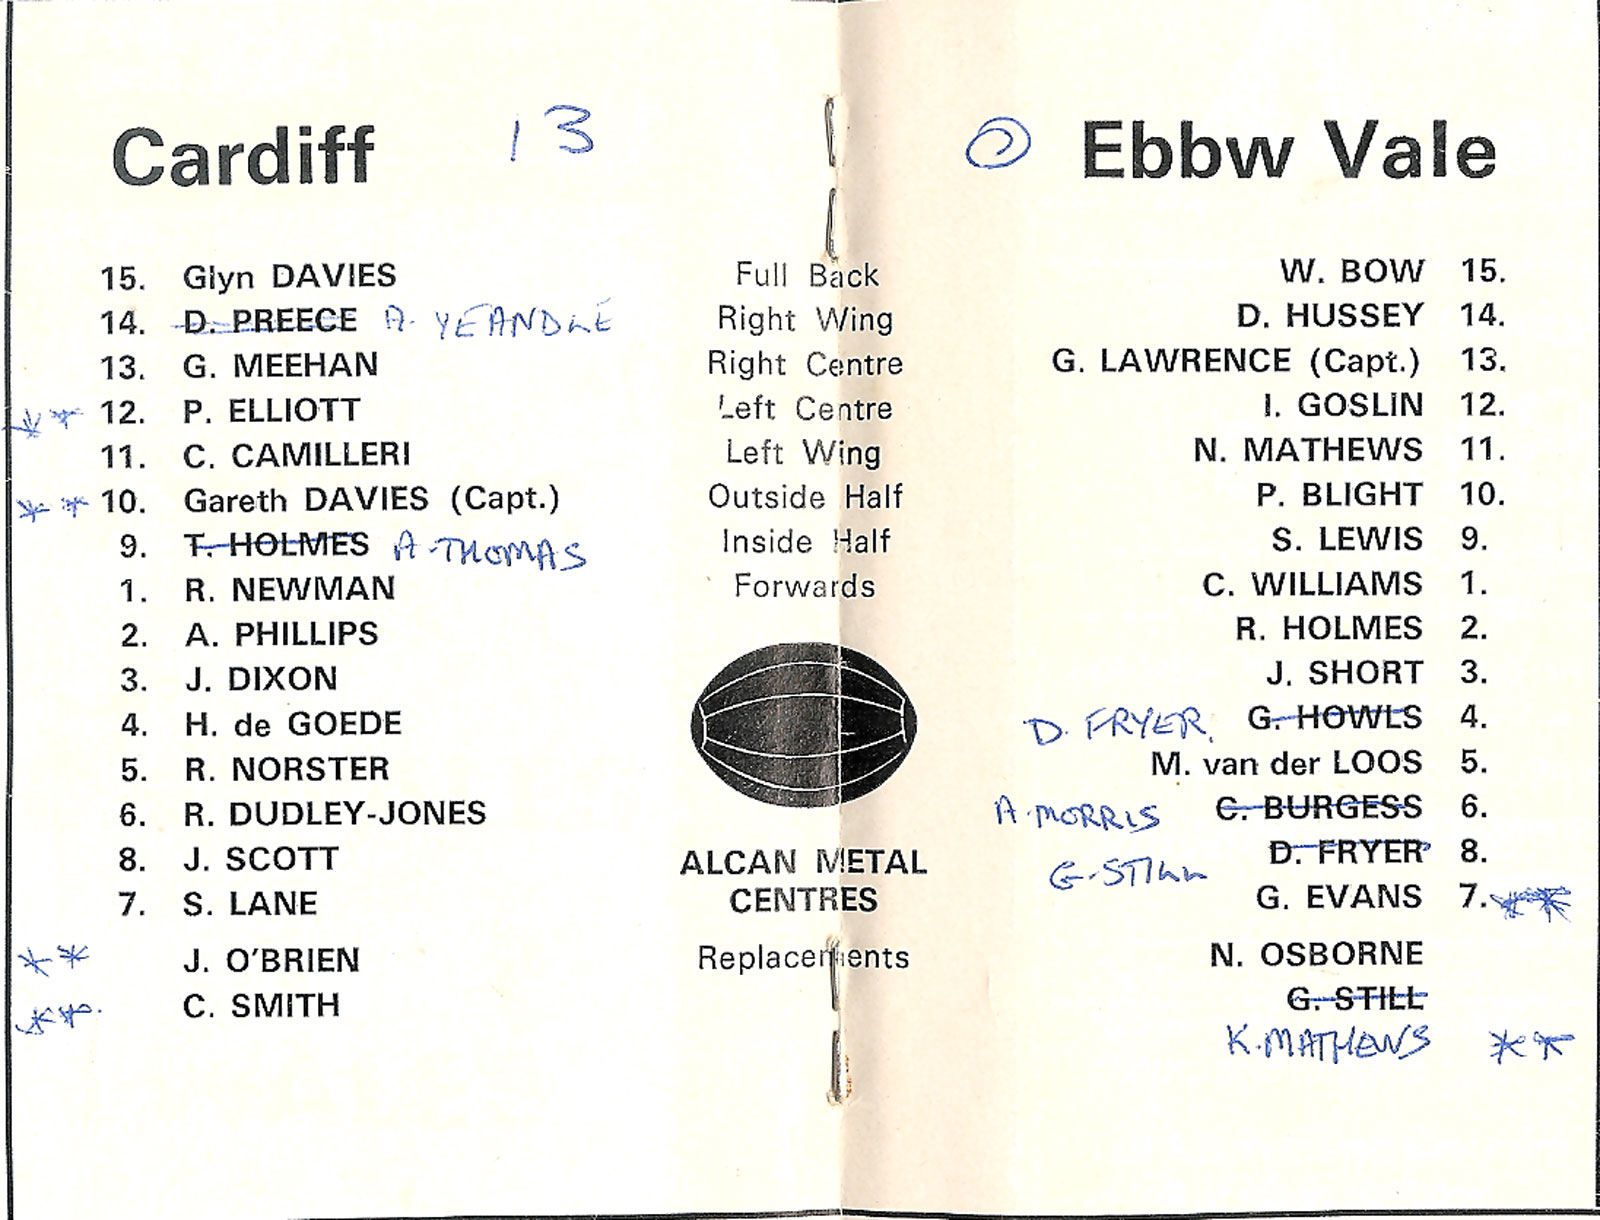 Cardiff 13 0 Ebbw Vale
15. Glyn DAVIES Full Back W. BOW 15.
14. D. PREECE A. YEANDLE Right Wing D. HUSSEY 14.
13. G. MEEHAN Right Centre G. LAWRENCE (Capt.) 13.
** 12. P. ELLIOTT Left Centre I. GOSLIN 12.
11. C. CAMILLERI Left Wing N. MATHEWS 11.
** 10. Gareth DAVIES (Capt.) Outside Half P. BLIGHT 10.
9. T. HOLMES A. THOMAS Inside Half S. LEWIS 9.
1. R. NEWMAN Forwards C. WILLIAMS 1.
2. A. PHILLIPS R. HOLMES 2.
3. J. DIXON J. SHORT 3.
4. H. de GOEDE D. FRYER. G. HOWLS 4.
5. R. NORSTER M. van der LOOS 5.
6. R. DUDLEY-JONES A. MORRIS C. BURGESS 6.
8. J. SCOTT G. STILL D. FRYER 8.
7. S. LANE G. EVANS 7. **
ALCAN METAL
CENTRES
** J. O'BRIEN Replacements N. OSBORNE
**. C. SMITH G. STILL
K. MATHEWS **